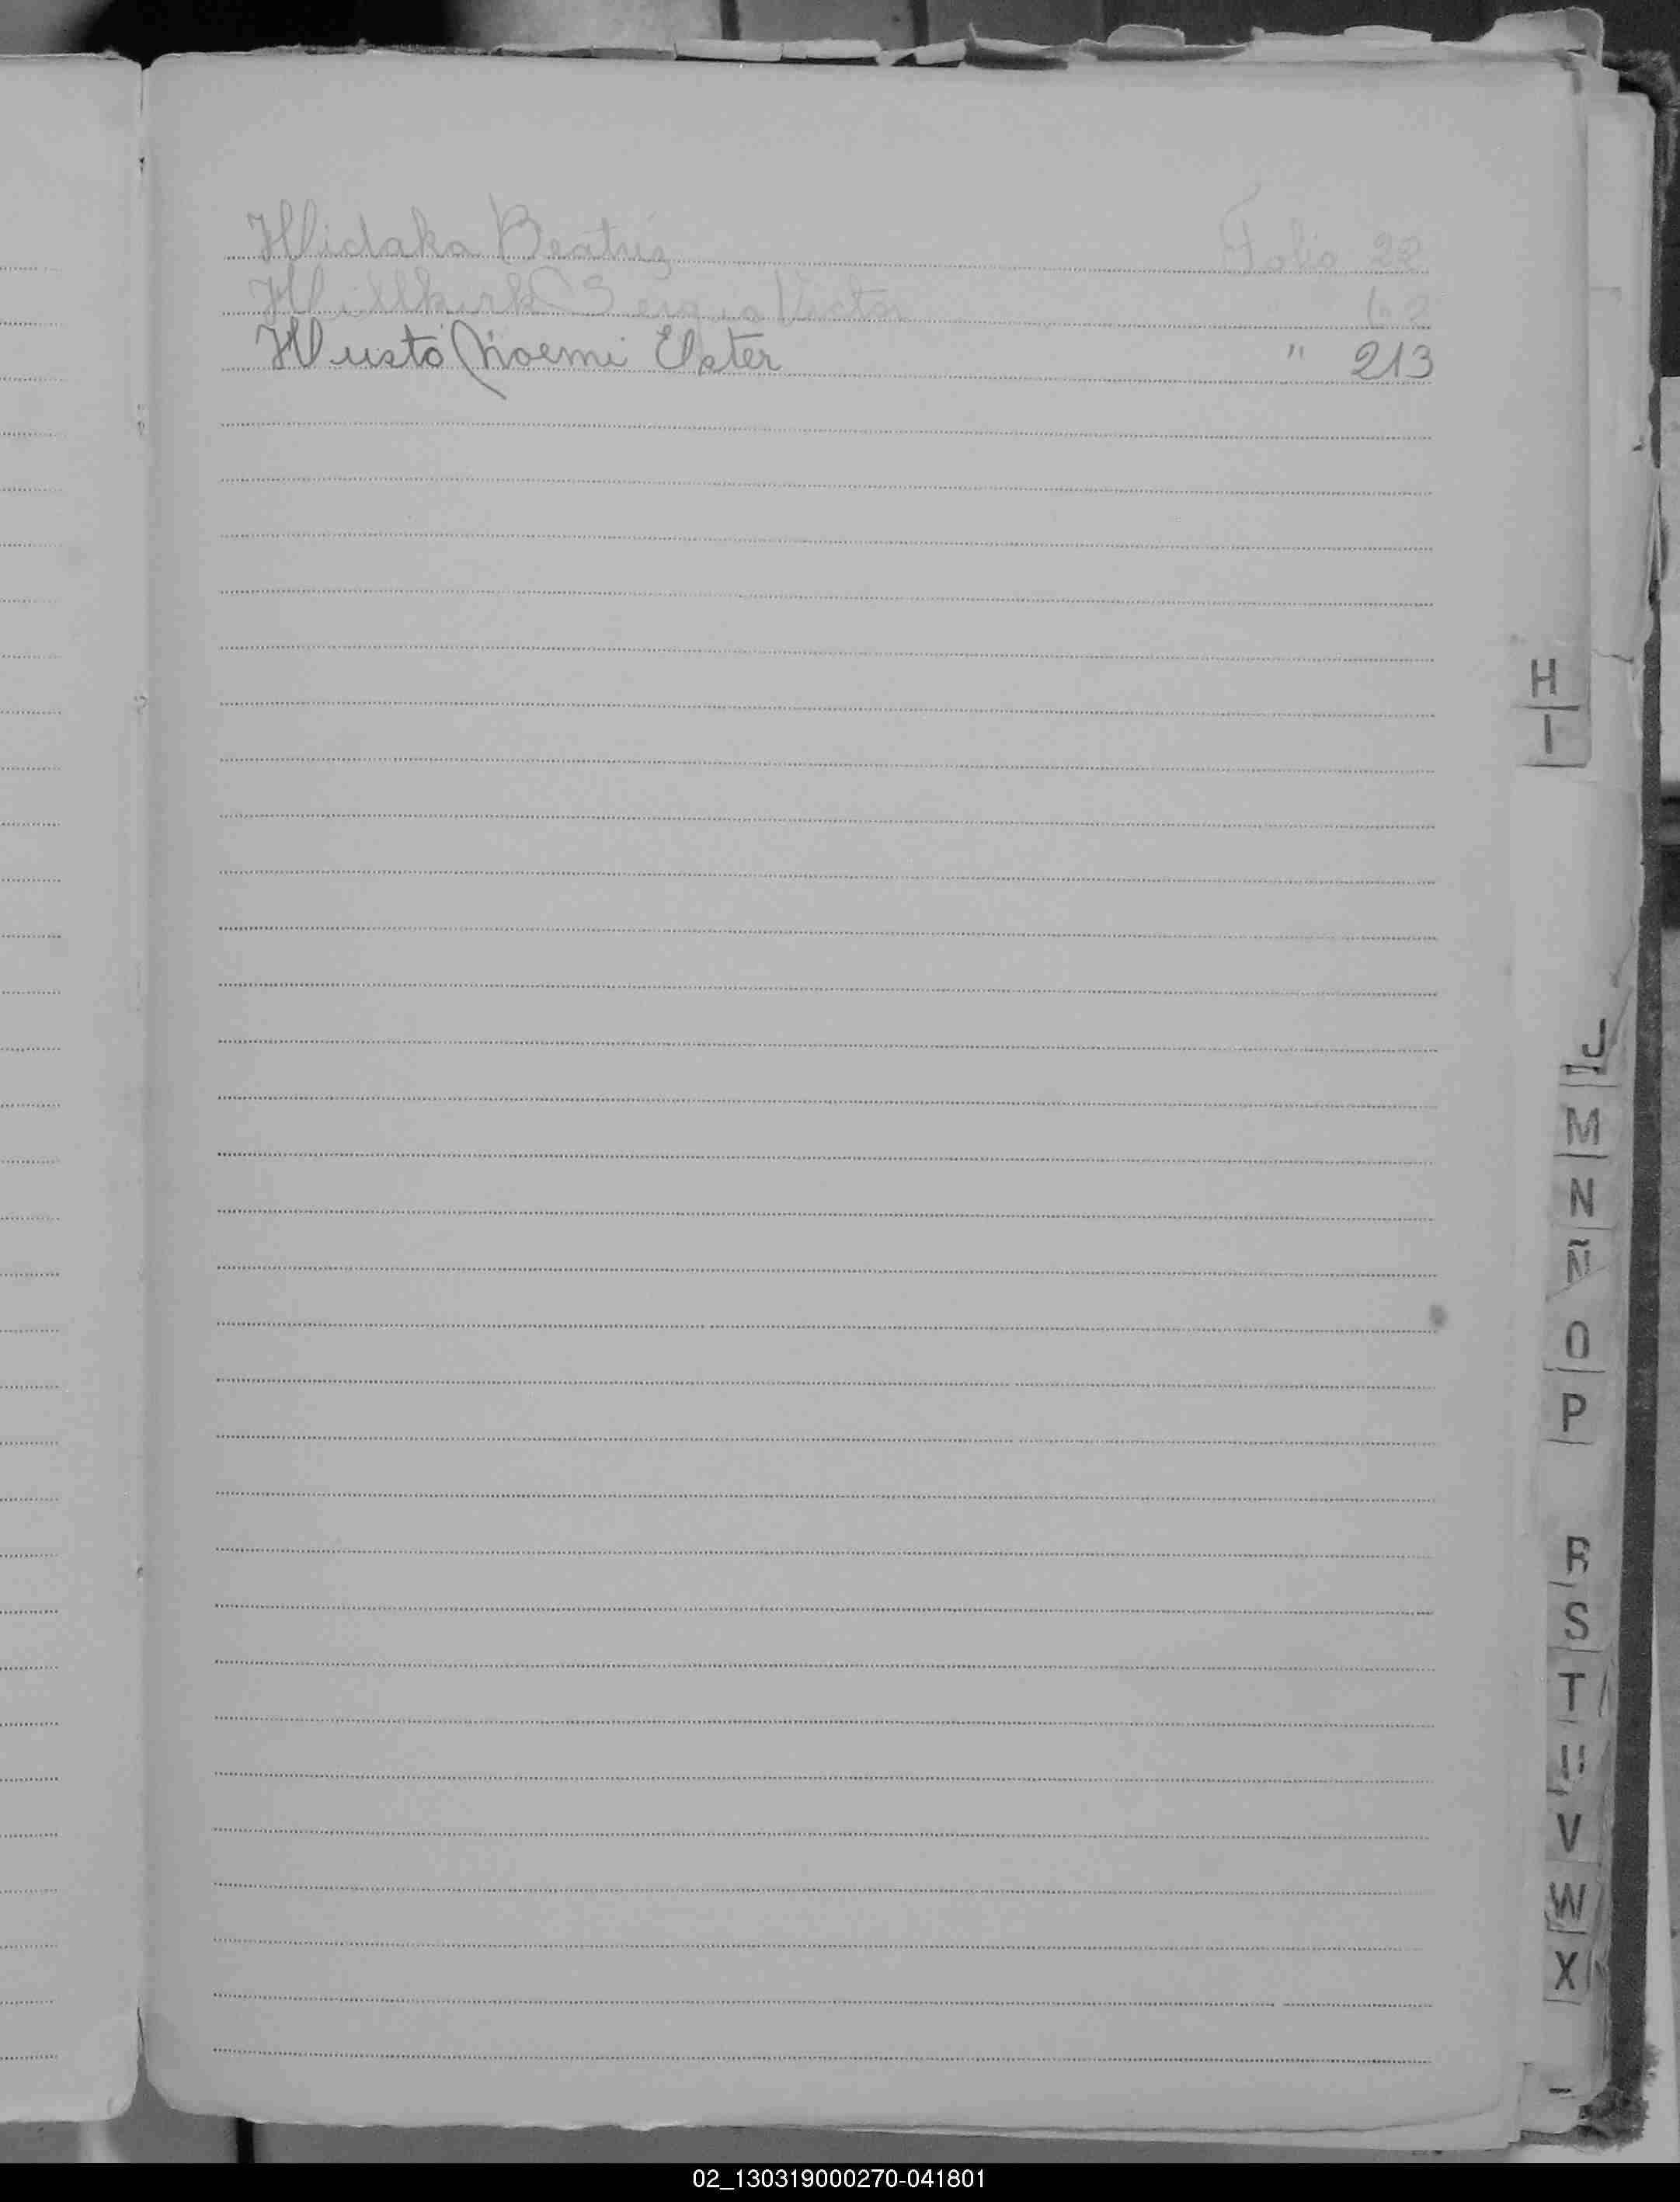 Hidaka Beatriz Folio 22
Hillkirk Sergio Victor
Husto Noemi Ester " 213
H
I
J
M
N
Ñ
O
P
R
S
T
U
V
W
X
02_130319000270-041801